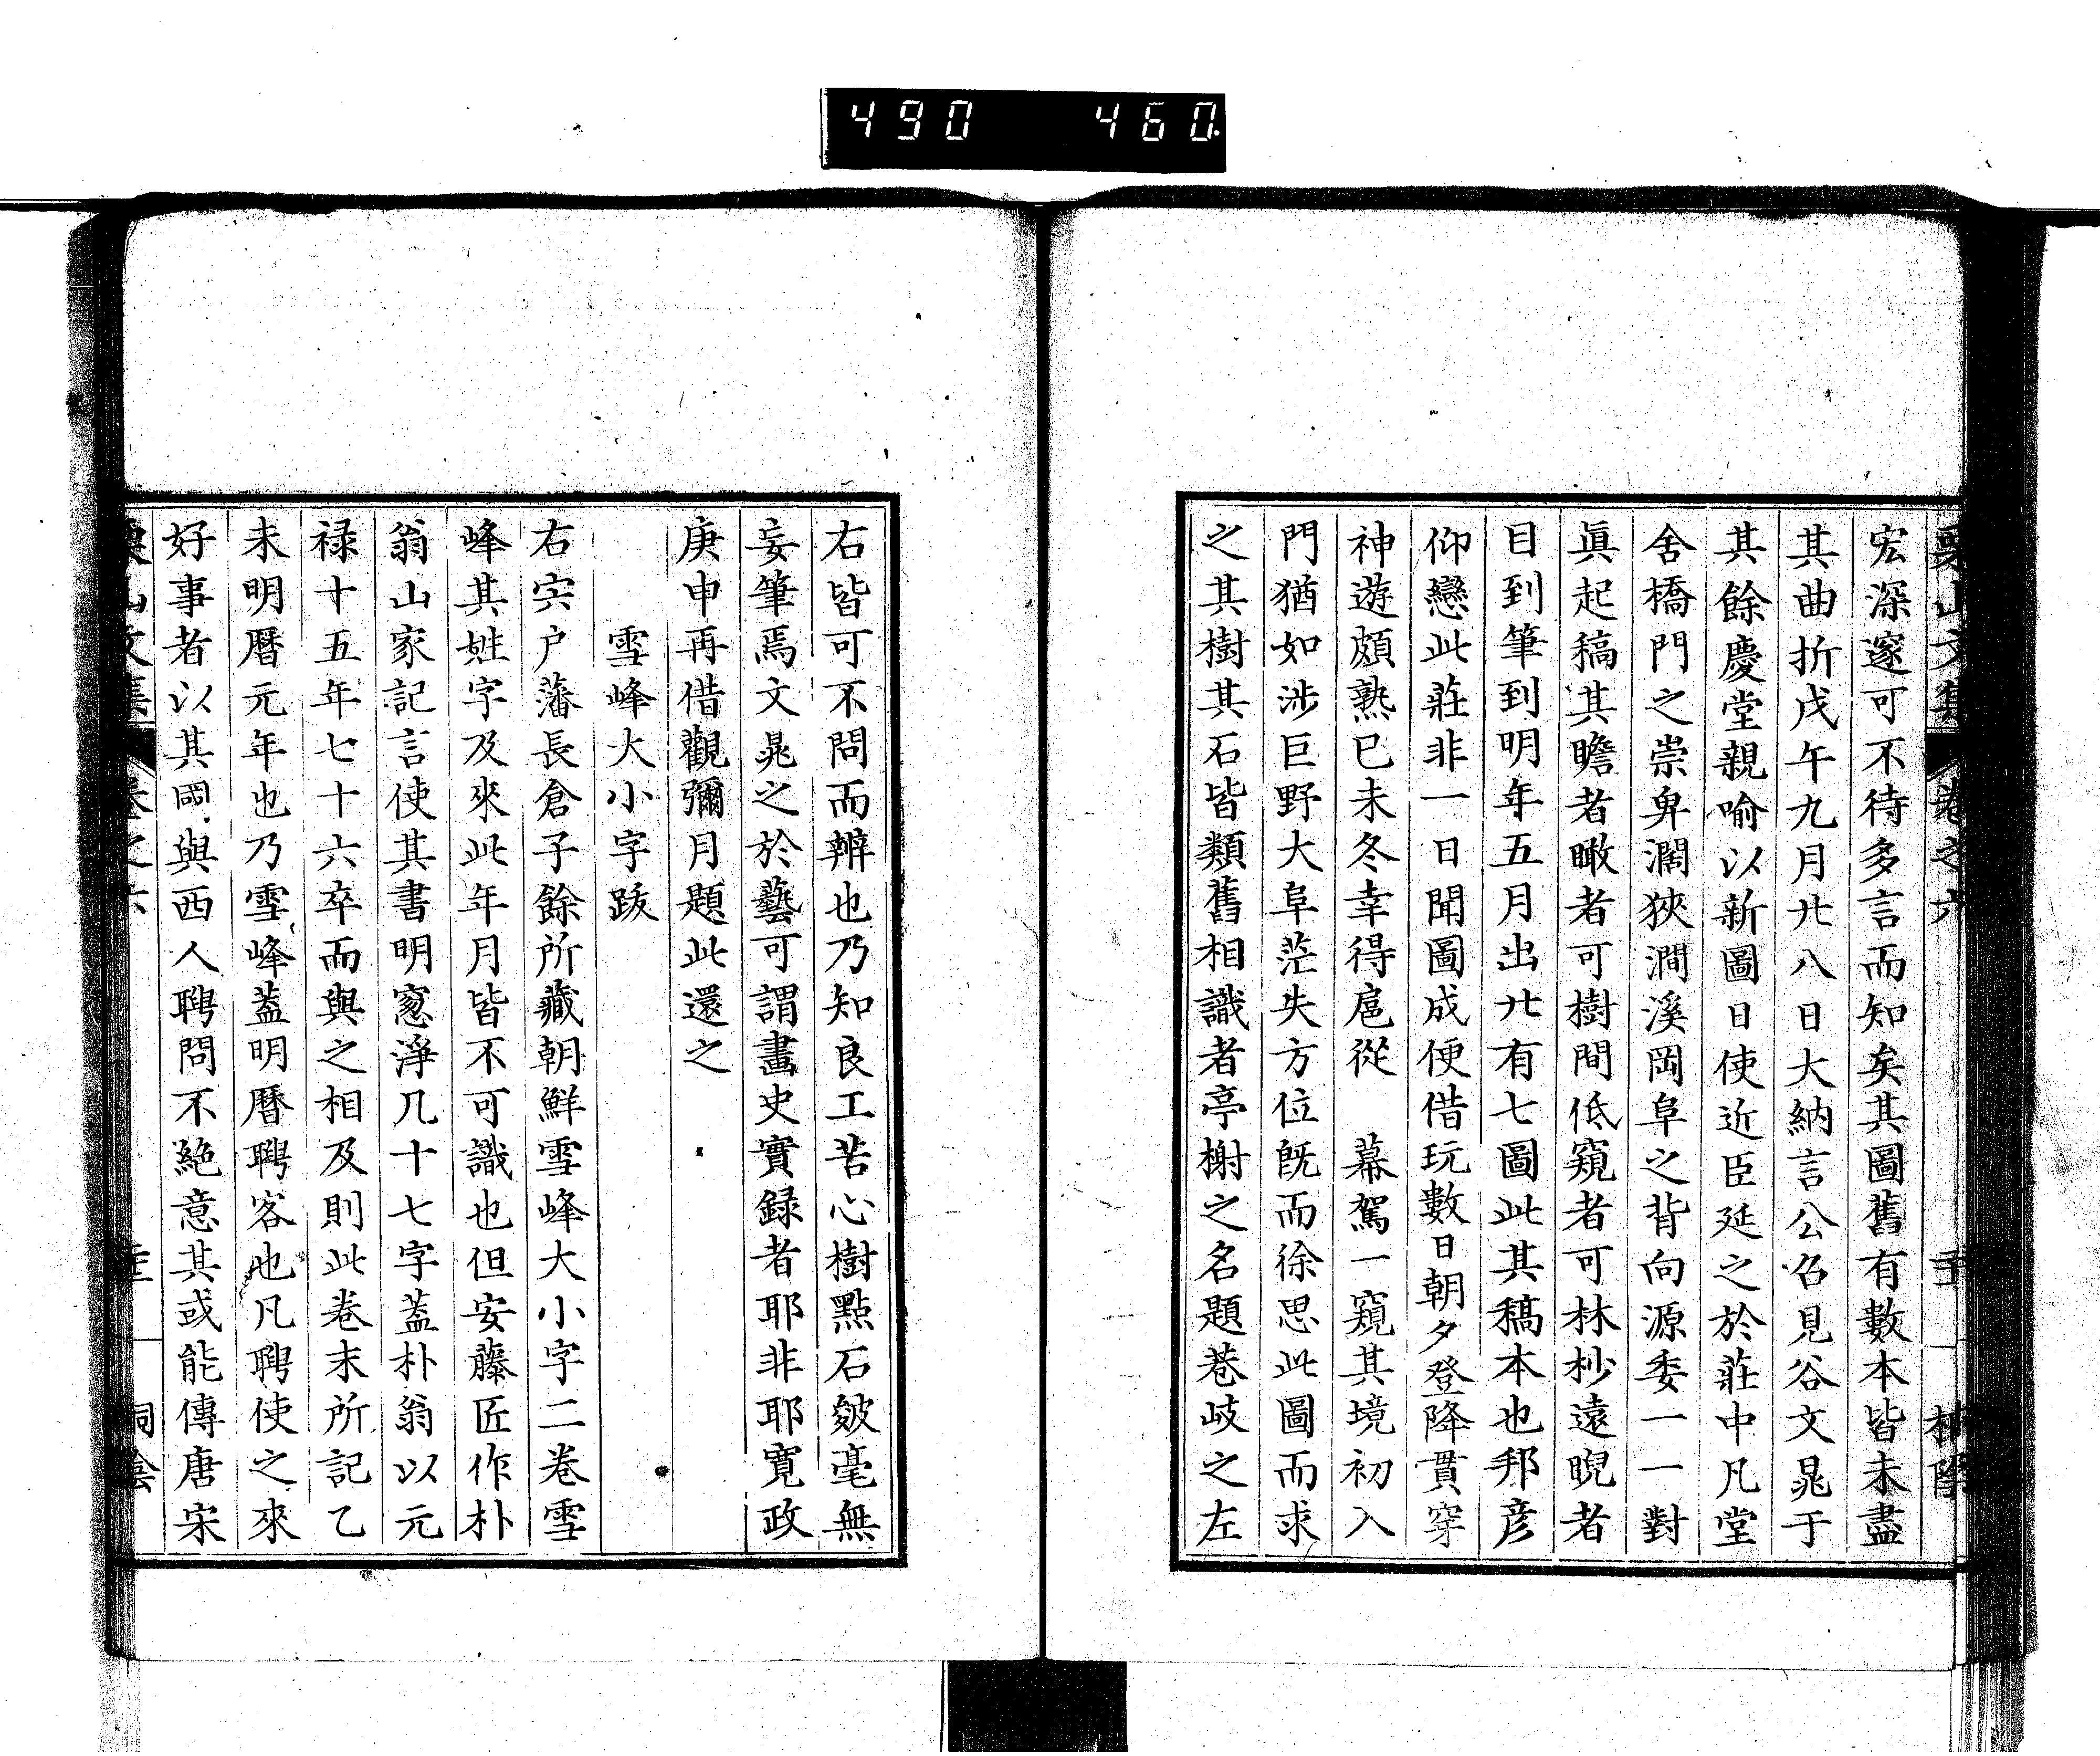 490 460
栗山文集 卷之六
宏深邃可不待多言而知矣其圖舊有數本皆未盡
其曲折戊午九月廿八日大納言公召見谷文晁于
其餘慶堂親喻以新圖日使近臣延之於莊中凡堂
舍橋門之崇卑濶狹澗溪岡阜之背向源委一一對
眞起稿其瞻者瞰者可樹間低窺者可林杪遠睨者
目到筆到明年五月出廿有七圖此其稿本也邦彦
仰戀此莊非一日聞圖成便借玩數日朝夕登降貫穿
神遊頗熟已未冬幸得扈從 幕駕一窺其境初入
門猶如涉巨野大阜茫失方位既而徐思此圖而求
之其樹其石皆類舊相識者亭榭之名題巷岐之左
右皆可不問而辨也乃知良工苦心樹點石皴毫無
妄筆焉文晁之於藝可謂畫史實録者耶非耶寛政
庚申再借觀彌月題此還之
雪峰大小字跋
右宍户藩長倉子餘所藏朝鮮雪峰大小字二卷雪
峰其姓字及來此年月皆不可識也但安藤匠作朴
翁山家記言使其書明窻淨几十七字蓋朴翁以元
禄十五年七十六卒而與之相及則此卷末所記乙
未明曆元年也乃雪峰蓋明曆聘客也凡聘使之來
好事者以其國與西人聘問不絶意其或能傳唐宋
栗山文集 卷之六